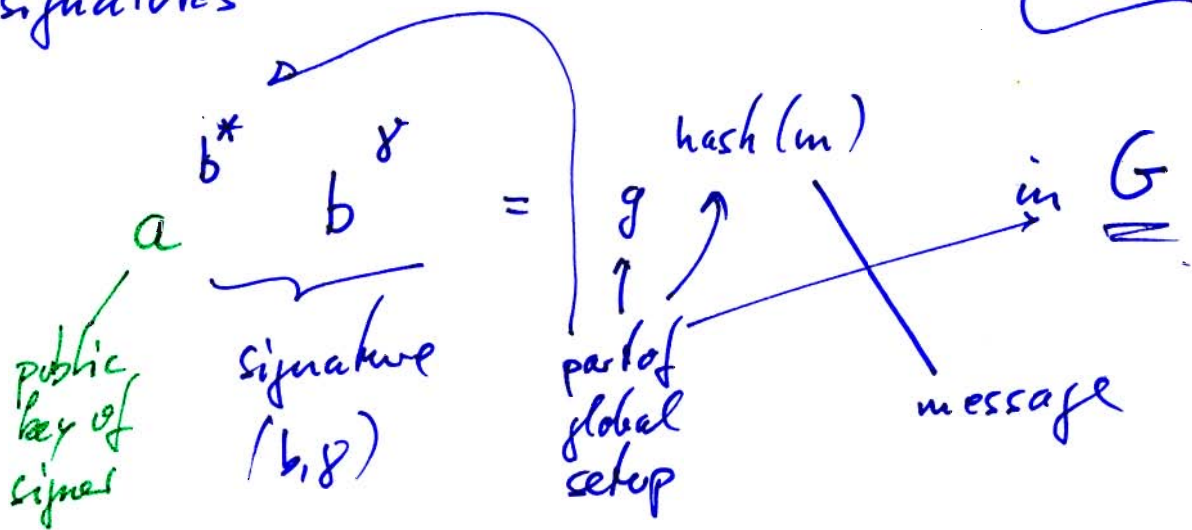 signatures
a^{b^*} b^γ = g^{hash(m)} in G
public key of signer
signature (b, γ)
part of global setup
message